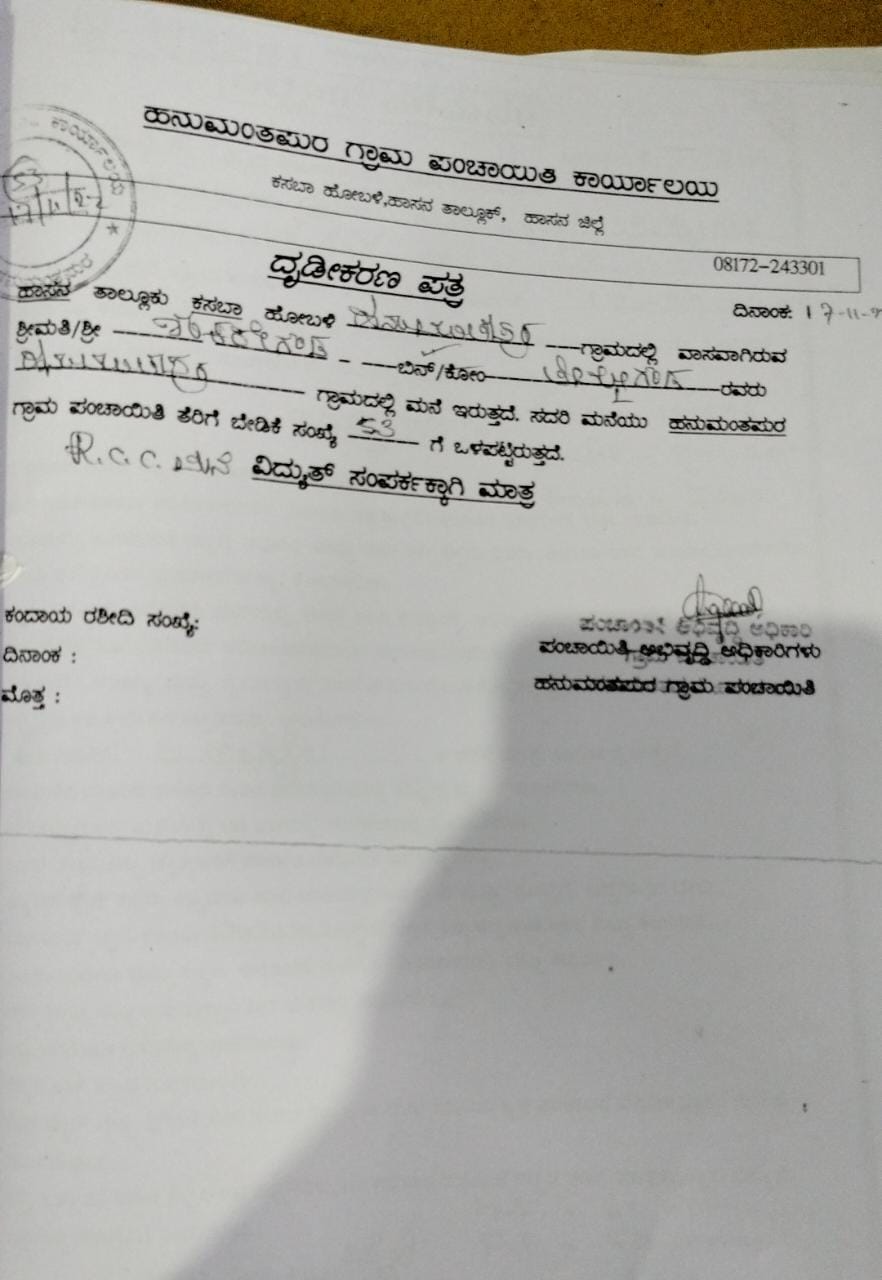 ಹನುಮಂತಪುರ ಗ್ರಾಮ ಪಂಚಾಯಿತಿ ಕಾರ್ಯಾಲಯ
ಕಾರ್ಯಾಲಯ
ಕಸಬಾ ಹೋಬಳಿ,ಹಾಸನ ತಾಲ್ಲೂಕ್, ಹಾಸನ ಜಿಲ್ಲೆ
08172-243301
ದೃಡೀಕರಣ ಪತ್ರ
ದಿನಾಂಕ: 17-11-
ಹಾಸನ ತಾಲ್ಲೂಕು ಕಸಬಾ ಹೋಬಳಿ ಗ್ರಾಮದಲ್ಲಿ ವಾಸವಾಗಿರುವ
ಶ್ರೀಮತಿ/ಶ್ರೀ ಬಿನ್/ಕೋಂ ರವರು
ಗ್ರಾಮದಲ್ಲಿ ಮನೆ ಇರುತ್ತದೆ. ಸದರಿ ಮನೆಯು ಹನುಮಂತಪುರ
ಗ್ರಾಮ ಪಂಚಾಯಿತಿ ತೆರಿಗೆ ಬೇಡಿಕೆ ಸಂಖ್ಯೆ 53 ಗೆ ಒಳಪಟ್ಟಿರುತ್ತದೆ.
R.C.C. ಮನೆ ವಿದ್ಯುತ್ ಸಂಪರ್ಕಕ್ಕಾಗಿ ಮಾತ್ರ
ಕಂದಾಯ ರಶೀದಿ ಸಂಖ್ಯೆ:
ದಿನಾಂಕ :
ಮೊತ್ತ :
ಪಂಚಾಯಿತಿ ಅಭಿವೃದ್ಧಿ ಅಧಿಕಾರಿ
ಪಂಚಾಯಿತಿ ಅಭಿವೃದ್ಧಿ ಅಧಿಕಾರಿಗಳು
ಹನುಮಂತಪುರ ಗ್ರಾಮ ಪಂಚಾಯಿತಿ